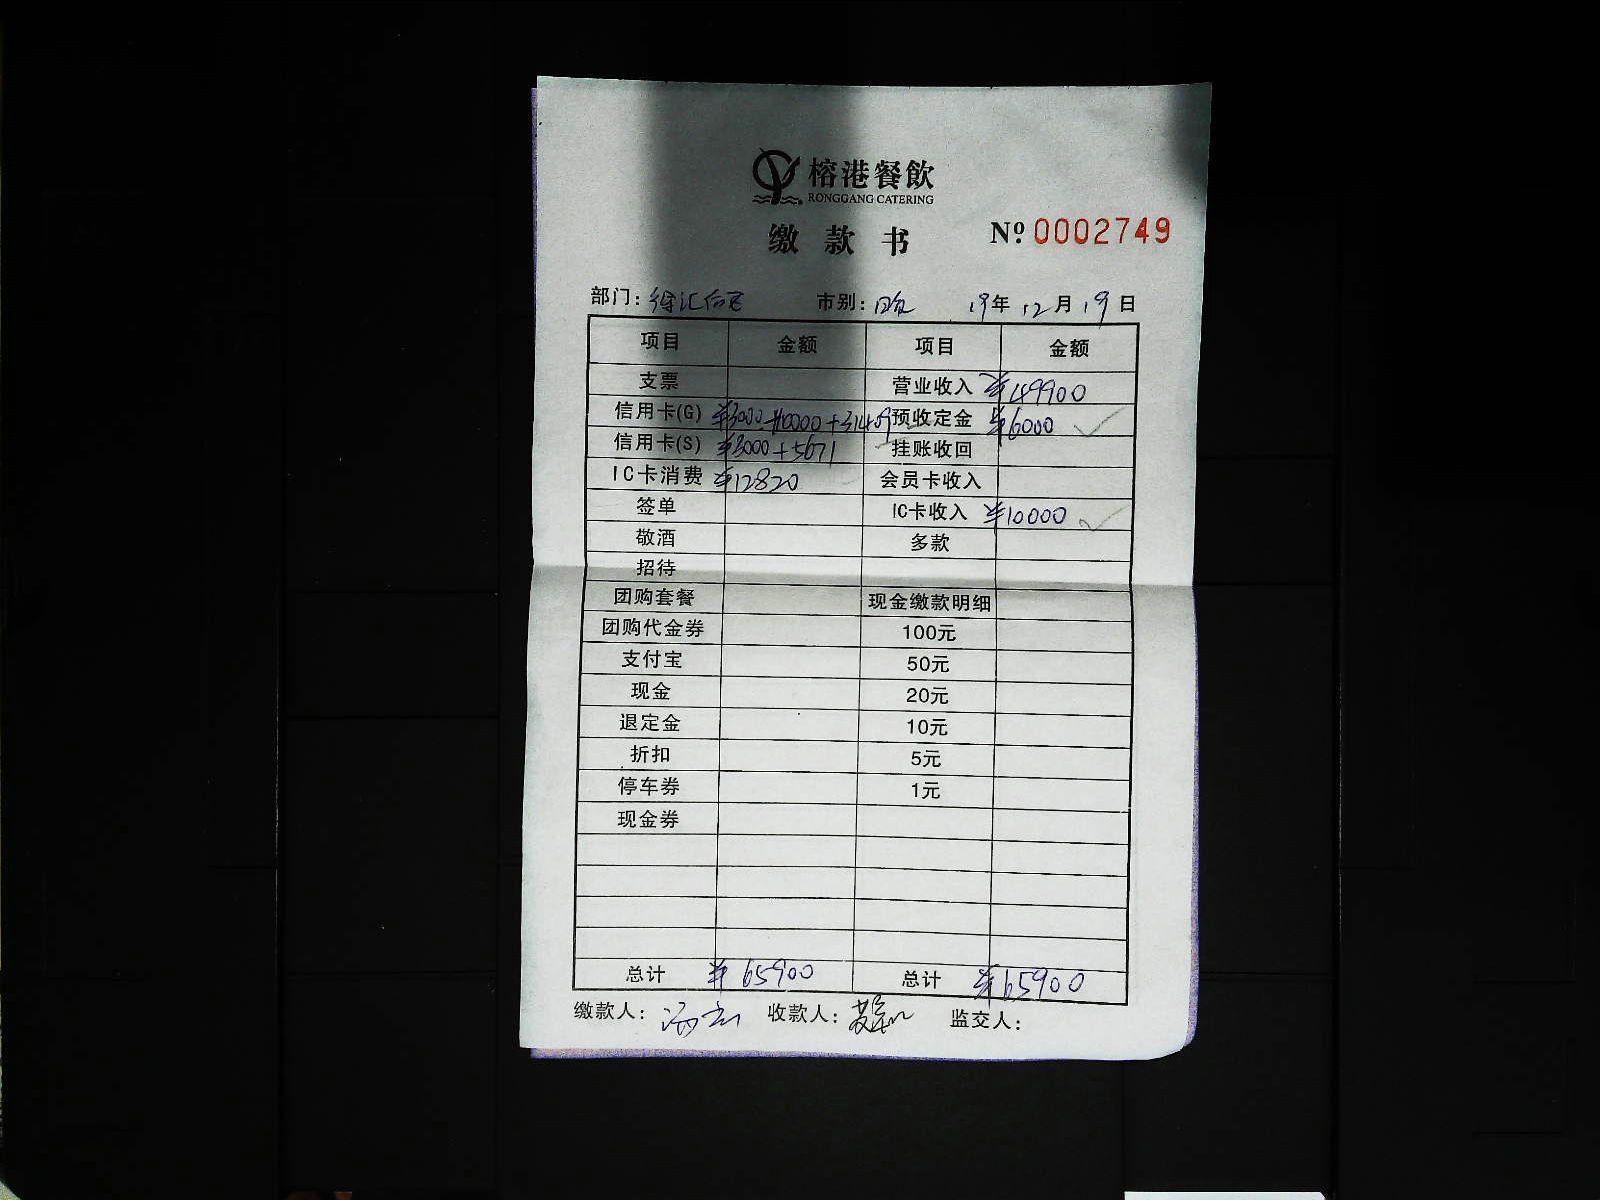 榕港餐飲
RONGGANG CATERING
缴款书
№ 0002749
部门: 徐汇 市别: 19年 12月 19日
项目 金额 项目 金额
支票 营业收入 ¥49900
信用卡(G) ¥3000+10000+31409 预收定金 ¥6000 ✓
信用卡(S) ¥3000+5671 挂账收回
IC卡消费 ¥12820 会员卡收入
签单 IC卡收入 ¥10000 ✓
敬酒 多款
招待
团购套餐 现金缴款明细
团购代金券 100元
支付宝 50元
现金 20元
退定金 10元
折扣 5元
停车券 1元
现金券
总计 ¥65900 总计 ¥65900
缴款人: 收款人: 监交人: